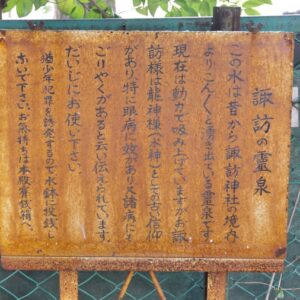 諏訪の霊泉
この水は昔から諏訪神社の境内
よりこんこんと湧き出ている霊泉です。
現在は動力で吸み上げていますがお諏
訪様は龍神様(水神)としての古い信仰
があり特に眼病に效があり又諸病にも
ごりやくがあると云い伝えられています。
だいじにお使い下さい。
猶少年犯罪を誘発するので水鉢に投銭し
ないで下さい。お気持ちは本殿賽銭箱へ。